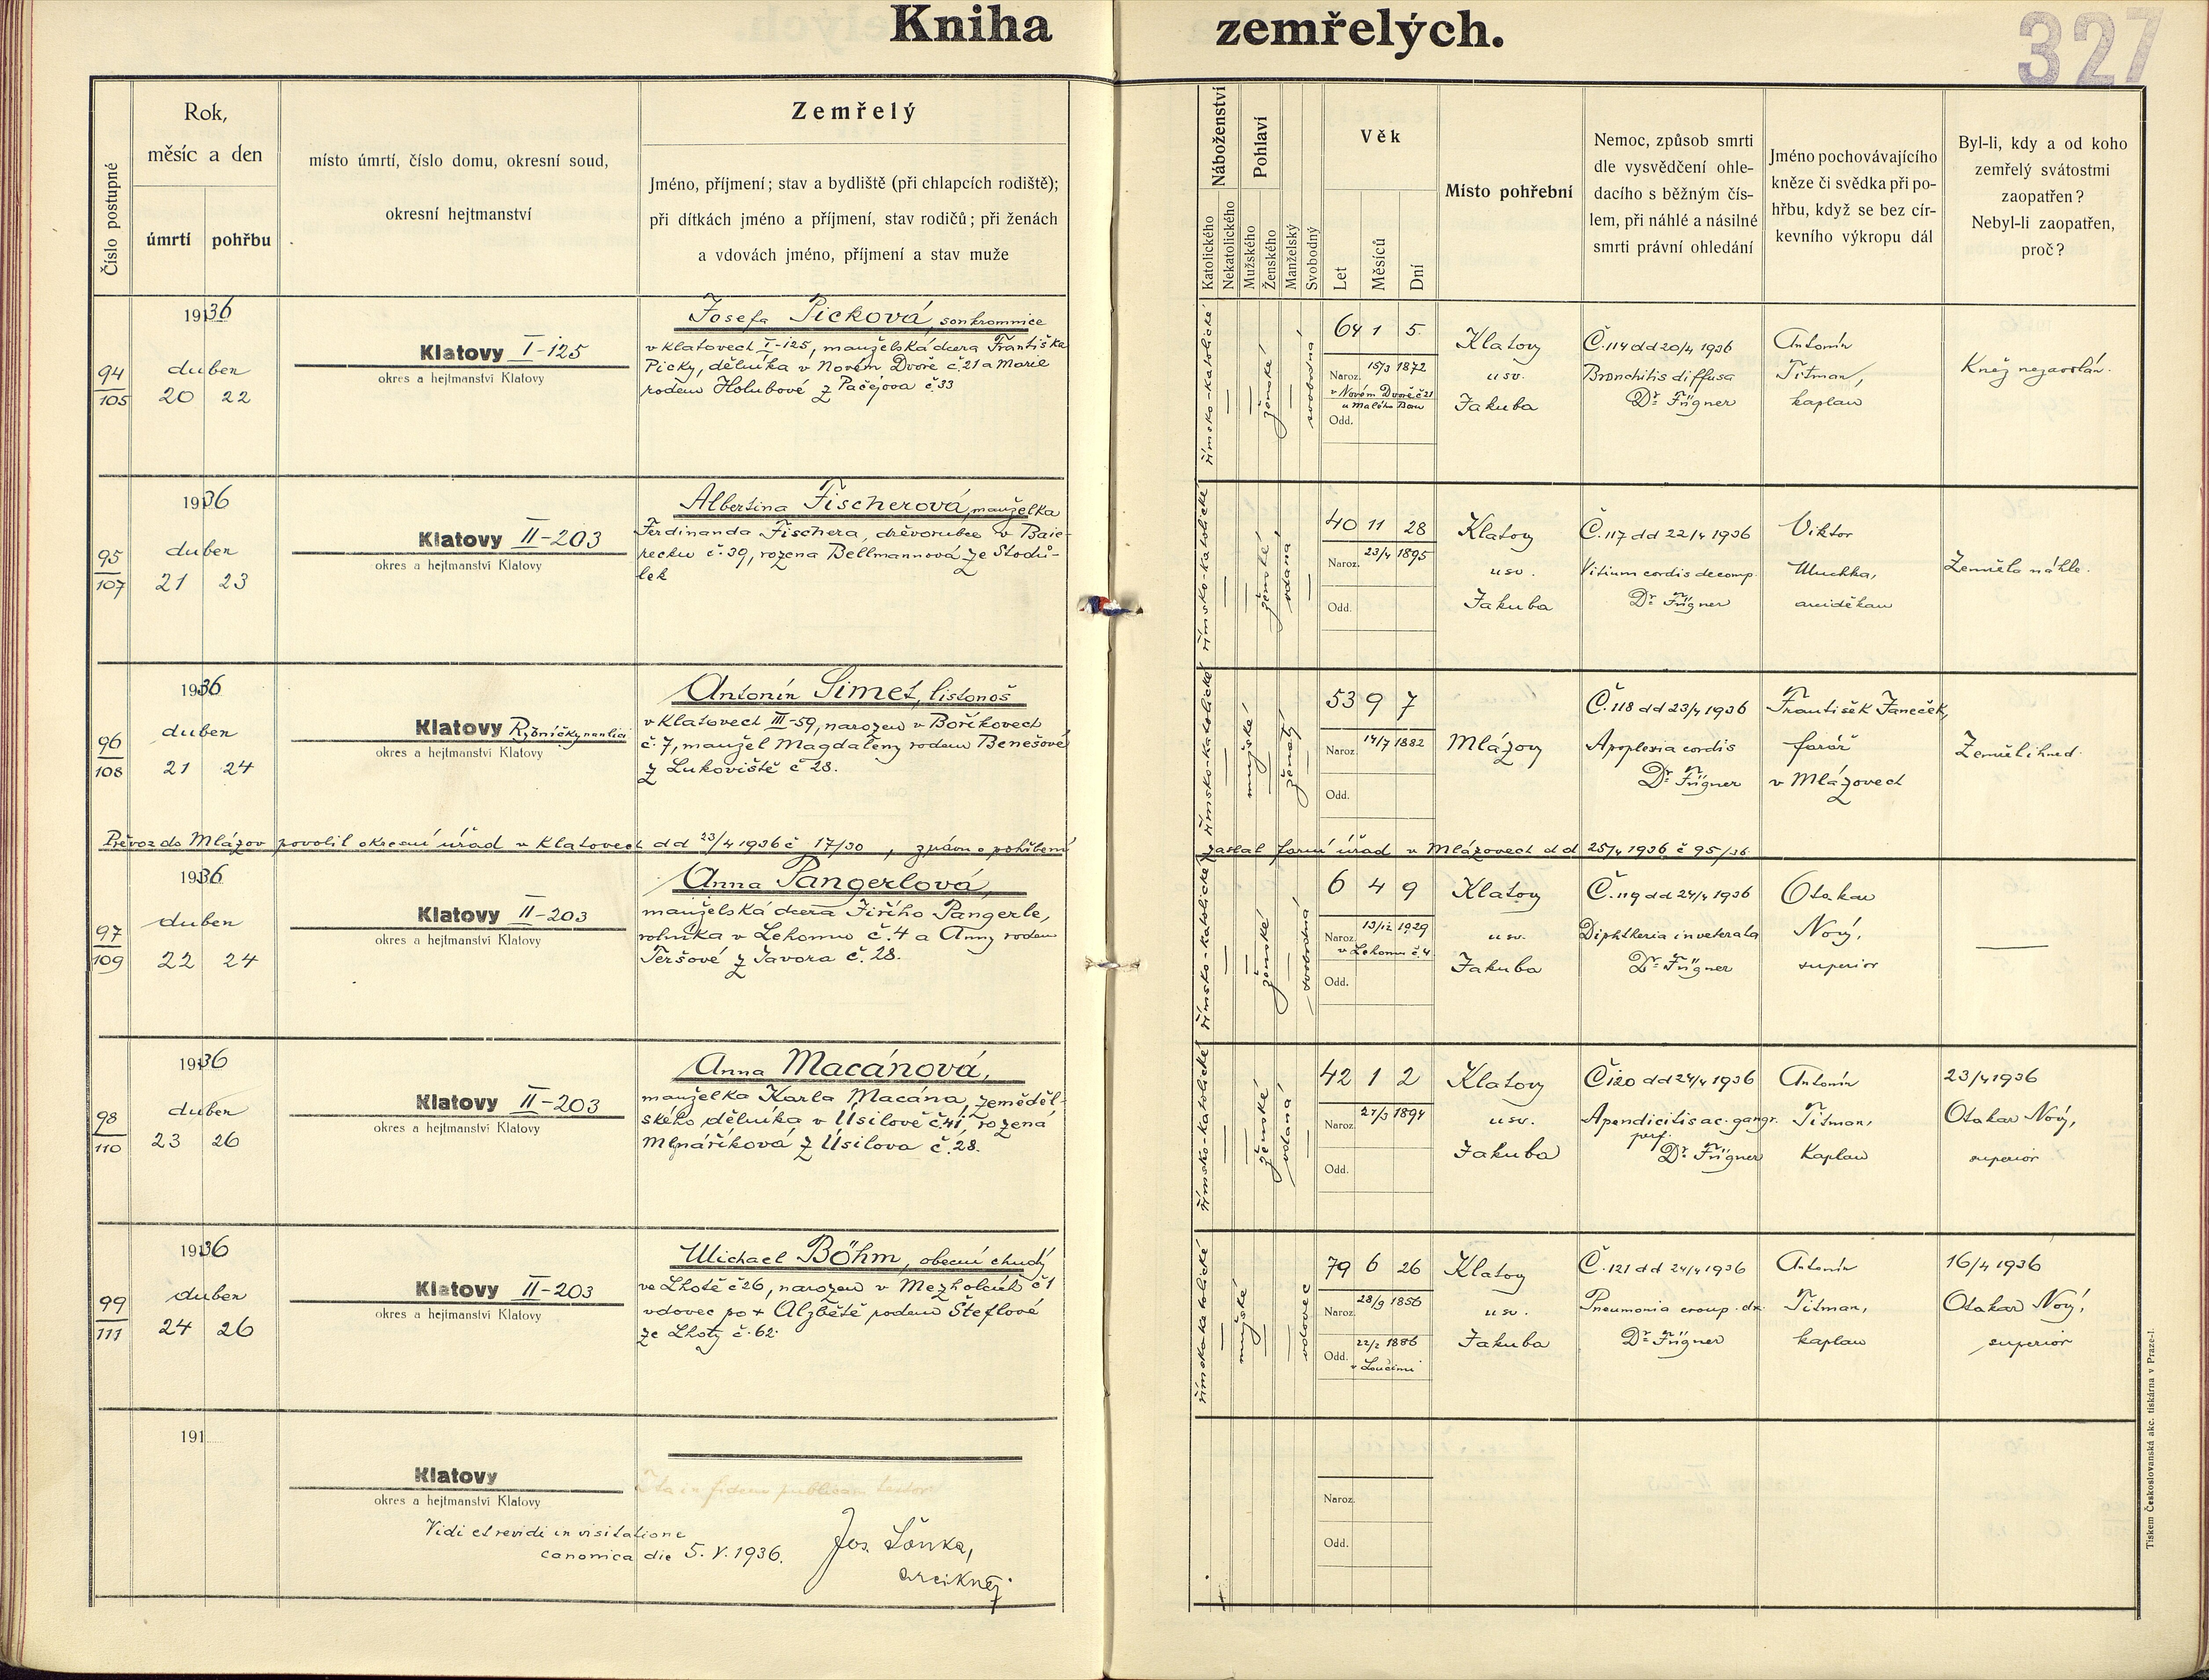 Kniha zemřelých.
327
Číslo postupné
Rok,
měsíc a den
úmrtí
pohřbu
místo úmrtí, číslo domu, okresní soud,
okresní hejtmanství
Zemřelý
Jméno, příjmení; stav a bydliště (při chlapcích rodiště);
při dítkách jméno a příjmení, stav rodičů; při ženách
a vdovách jméno, příjmení a stav muže
Náboženství
Katolického
Nekatolického
Pohlaví
Mužského
Ženského
Manželský
Svobodný
Věk
Let
Měsíců
Dní
Místo pohřební
Nemoc, způsob smrti
dle vysvědčení ohle-
dacího s běžným čís-
lem, při náhlé a násilné
smrti právní ohledání
Jméno pochovávajícího
kněze či svědka při po-
hřbu, když se bez cír-
kevního výkropu dál
Byl-li, kdy a od koho
zemřelý svátostmi
zaopatřen?
Nebyl-li zaopatřen,
proč?
94
105
1936
duben
20 22
Klatovy I-125
okres a hejtmanství Klatovy
Josefa Picková, soukromnice
v Klatovech I-125, manželská dcera Františka
Picky, dělníka v Novém Dvoře č. 21 a Marie
rodem Holubové z Pačejova č. 33
římsko-katolické
ženské
svobodná
64 1 5
Naroz. 15/3 1872
v Novém Dvoře č 21
u Malého Boru
Odd.
Klatovy
u sv.
Jakuba
Č. 114 dd 20/4 1936
Bronchitis diffusa
Dr. Fügner
Antonín
Titman,
kaplan
Kněz nezavolán.
95
107
1936
duben
21 23
Klatovy II-203
okres a hejtmanství Klatovy
Albertina Fischerová, manželka
Ferdinanda Fischera, dřevorubce v Baie-
recku č. 39, rozena Bellmannová ze Stodů-
lek
římsko-katolické
ženské
vdaná
40 11 28
Naroz. 23/4 1895
Odd.
Klatovy
u sv.
Jakuba
Č. 117 dd 22/4 1936
Vitium cordis decomp.
Dr. Fügner
Viktor
Muchka,
arciděkan
Zemřela náhle.
96
108
1936
duben
21 24
Klatovy Rybníčky na ulici
okres a hejtmanství Klatovy
Antonín Simet, listonoš
v Klatovech III-59, narozen v Boříkovech
č. 7, manžel Magdaleny rodem Benešové
z Lukoviště č 28.
římsko-katolické
mužské
ženatý
53 9 7
Naroz. 14/7 1882
Odd.
Mlázovy
Č. 118 dd 23/4 1936
Apoplexia cordis
Dr. Fügner
František Janeček,
farář
v Mlázovech
Zemřel ihned.
Převoz do Mlázov povolil okresní úřad v Klatovech dd 23/4 1936 č 17/30, zprávu o pohřbení zaslal farní úřad v Mlázovech dd 25/4 1936 č 95/36
97
109
1936
duben
22 24
Klatovy II-203
okres a hejtmanství Klatovy
Anna Pangerlová,
manželská dcera Jiřího Pangerle,
rolníka v Lehomu č. 4 a Anny rodem
Teršové z Javora č. 28.
římsko-katolické
ženské
svobodná
6 4 9
Naroz. 13/12 1929
v Lehomu č. 4
Odd.
Klatovy
u sv.
Jakuba
Č. 119 dd 24/4 1936
Diphtheria inveterata
Dr. Fügner
Otakar
Nový,
superior
98
110
1936
duben
23 26
Klatovy II-203
okres a hejtmanství Klatovy
Anna Macánová,
manželka Karla Macána, zeměděl-
ského dělníka v Úsilově č. 41, rozená
Mlynáříková z Úsilova č. 28.
římsko-katolické
ženské
vdaná
42 1 2
Naroz. 21/3 1894
Odd.
Klatovy
u sv.
Jakuba
Č 120 dd 24/4 1936
Apendicitis ac. gangr.
perf.
Dr. Fügner
Antonín
Titman,
Kaplan
23/4 1936
Otakar Nový,
superior
99
111
1936
duben
24 26
Klatovy II-203
okres a hejtmanství Klatovy
Michael Böhm, obecní chudý
ve Lhotě č 26, narozen v Mezholcích č 1
vdovec po + Alžbětě rodem Šteflové
ze Lhoty č. 62.
římskokatolické
mužské
vdovec
79 6 26
Naroz. 28/9 1856
Odd. 22/2 1886
v Loučimi
Klatovy
u sv.
Jakuba
Č. 121 dd 24/4 1936
Pneumonia croup. dx.
Dr. Fügner
Antonín
Titman,
kaplan
16/4 1936
Otakar Nový,
superior
191
Klatovy
okres a hejtmanství Klatovy
Naroz.
Odd.
Vidi et revidi in visitatione
canonica die 5. V. 1936.
Jos. Loňka,
arcikněz
Tiskem Československá akc. tiskárna v Praze-I.